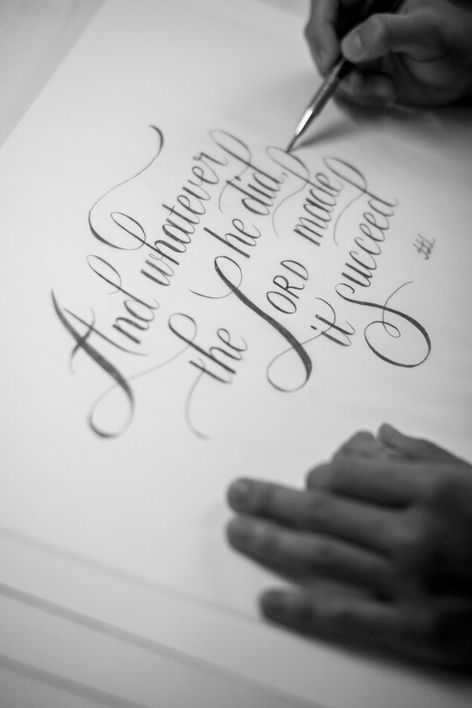 And whatever
he did,
the LORD made
it succeed